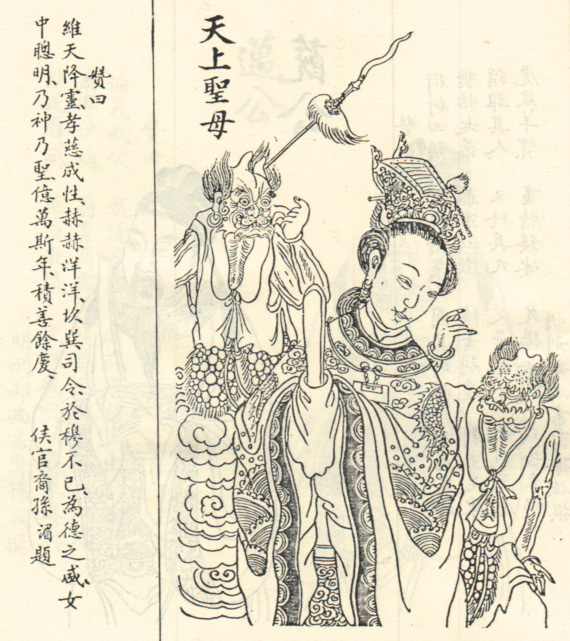 天上聖母
賛曰
維天降靈、孝慈成性、赫赫洋洋、坎巽司令、於穆不已、為德之盛、女
中聰明、乃神乃聖、億萬斯年、積善餘慶、 侯官裔孫湄題